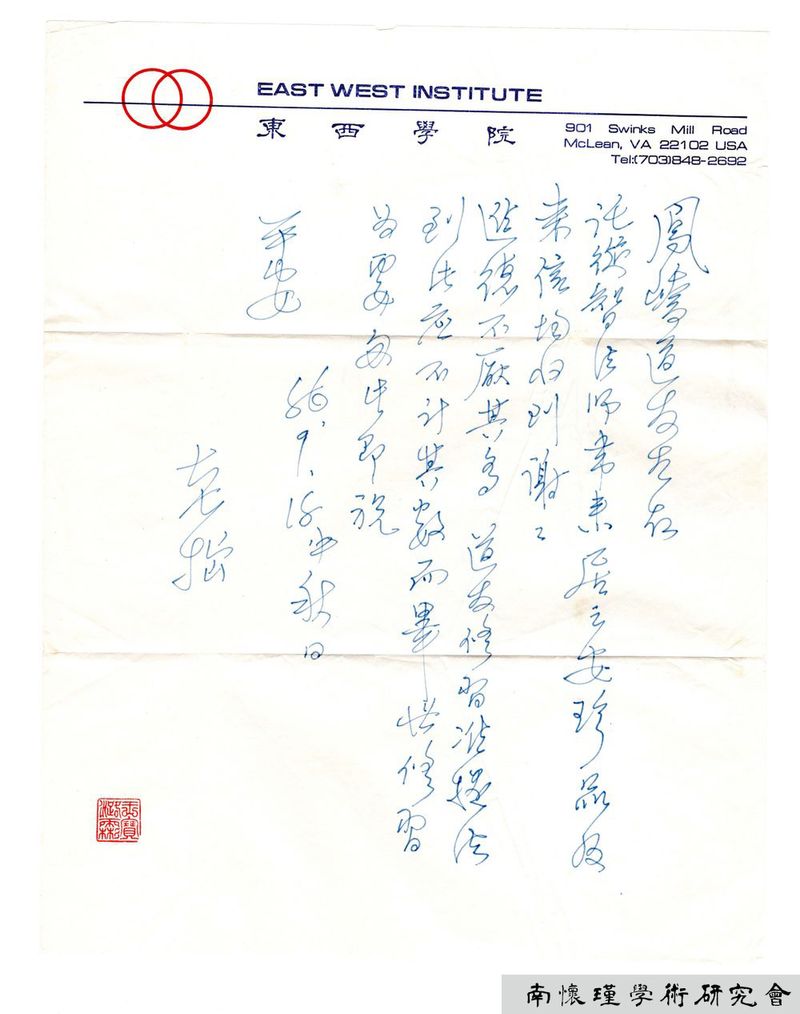 EAST WEST INSTITUTE
東西學院
901 Swinks Mill Road
McLean, VA 22102 USA
Tel:(703)848-2692
鳳嶠道友尤右
託從智法師帶來居之安珍品及
來信均收到謝謝
進德不厭其多 道友修習準提法
到此應不計其數而畢世修習
為要 匆此即祝
平安
86.9.18中秋日
老拙
南懷瑾學術研究會